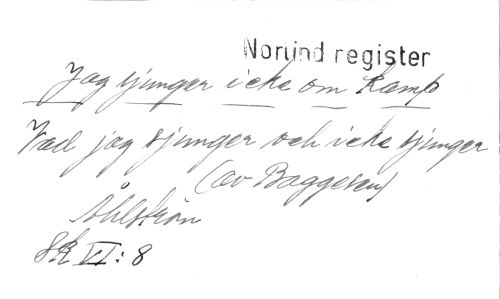 Norlind register
Jag sjunger icke om kamp
Vad jag sjunger och icke sjunger
(av Baggesen)
Åhlström
Sk VI: 8